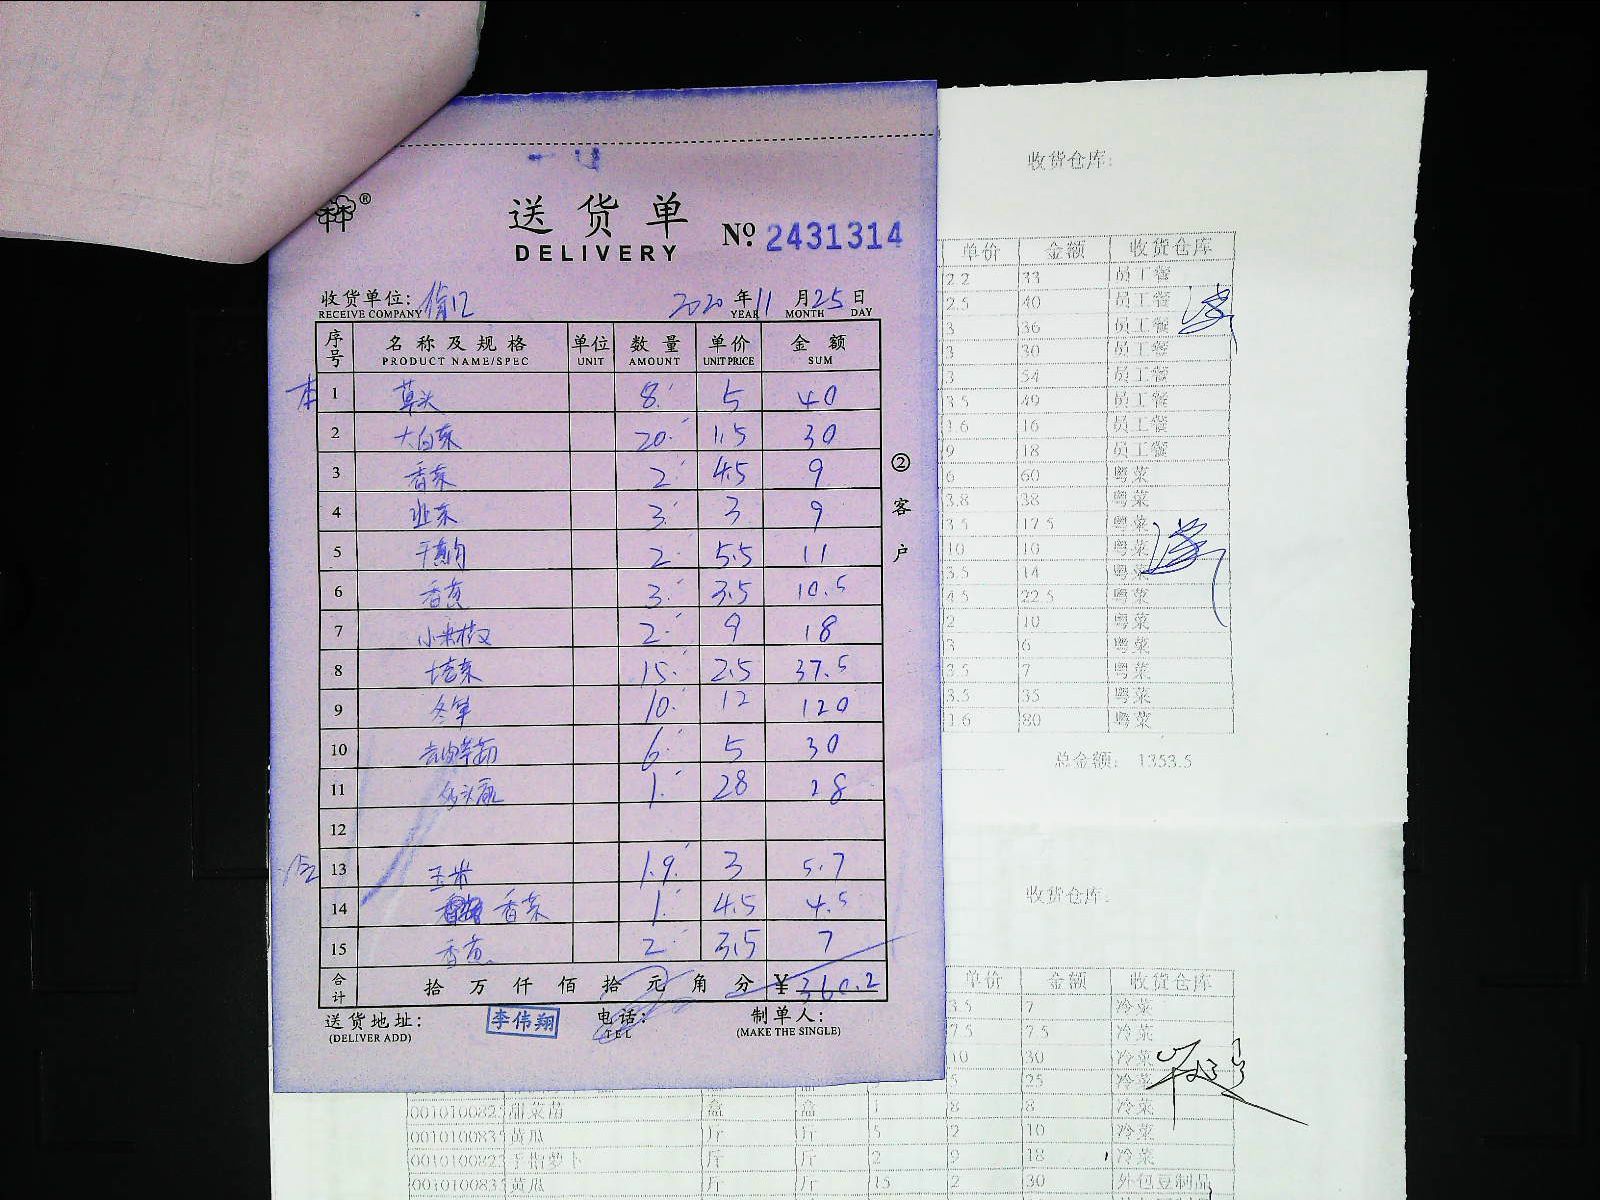 送货单
DELIVERY
№ 2431314
收货单位:
RECEIVE COMPANY
2020 年 11 月 25 日
YEAR MONTH DAY
序号 名称及规格 单位 数量 单价 金额
PRODUCT NAME/SPEC UNIT AMOUNT UNIT PRICE SUM
本 1 草头 8 5 40
2 大白菜 20 1.5 30
3 香菜 2 4.5 9
4 3 3 9
5 干葱肉 2 5.5 11
6 香葱 3 3.5 10.5
7 小米椒 2 9 18
8 塔菜 15 2.5 37.5
9 冬笋 10 12 120
10 6 5 30
11 1 28 28
12
13 玉米 1.9 3 5.7
14 香菜 1 4.5 4.5
15 香葱 2 3.5 7
合计 拾 万 仟 佰 拾 元 角 分 ¥360.2
送货地址:
(DELIVER ADD)
李伟翔
电话:
TEL
制单人:
(MAKE THE SINGLE)
② 客户
收货仓库:
单价 金额 收货仓库
2.2 33 员工餐
2.5 40 员工餐
3 36 员工餐
3 30 员工餐
3 54 员工餐
3.5 49 员工餐
1.6 16 员工餐
9 18 员工餐
6 60 粤菜
3.8 38 粤菜
3.5 17.5 粤菜
10 10 粤菜
3.5 14 粤菜
4.5 22.5 粤菜
2 10 粤菜
3 6 粤菜
3.5 7 粤菜
3.5 35 粤菜
1.6 80 粤菜
总金额: 1353.5
收货仓库:
单价 金额 收货仓库
3.5 7 冷菜
7.5 7.5 冷菜
10 30 冷菜
5 25 冷菜
甜菜苗 盒 盒 1 8 8 冷菜
黄瓜 斤 斤 5 2 10 冷菜
手指萝卜 斤 斤 2 9 18 冷菜
黄瓜 斤 斤 15 2 30 外包豆制品